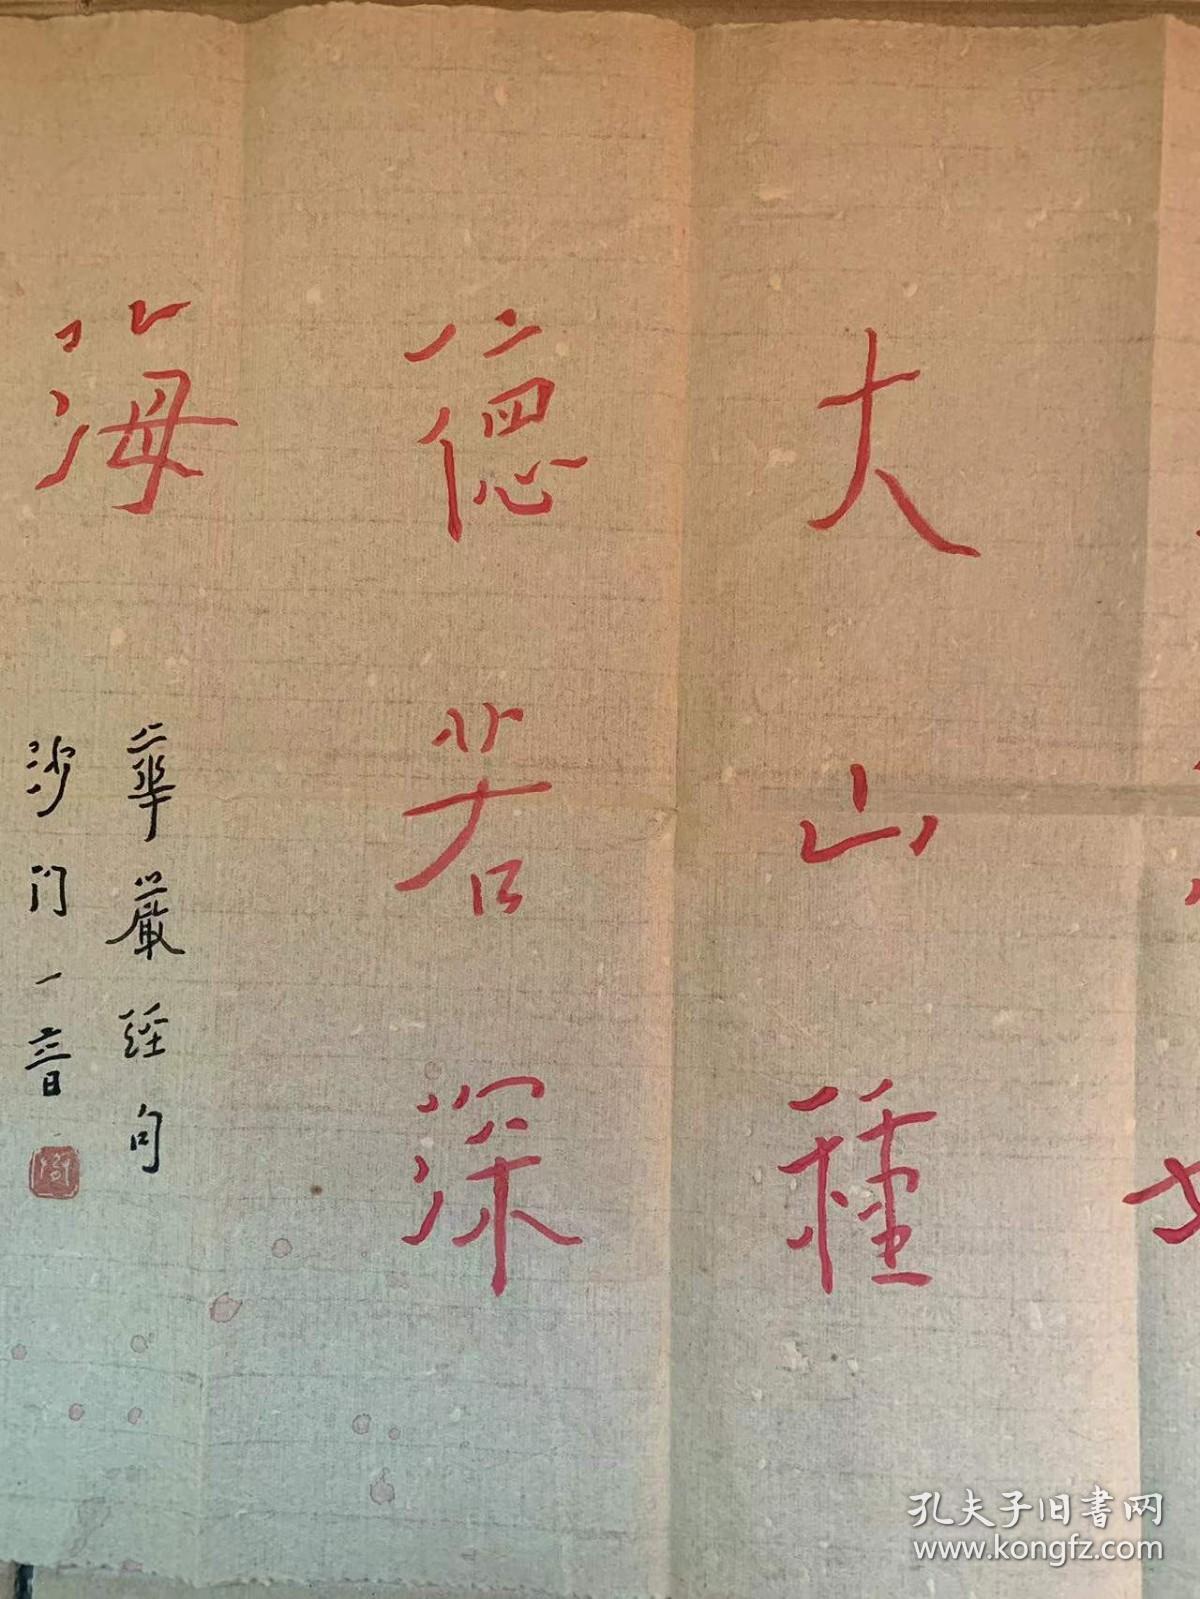 大山種
德若深
海
華嚴經句
沙门一音
孔夫子旧書网
www.kongfz.com